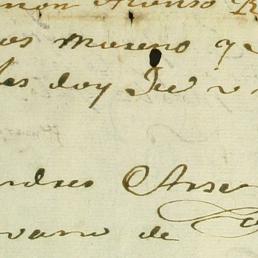 mon Alonso R
os Moreno y
les doy fee v
ndres Anse
vano de